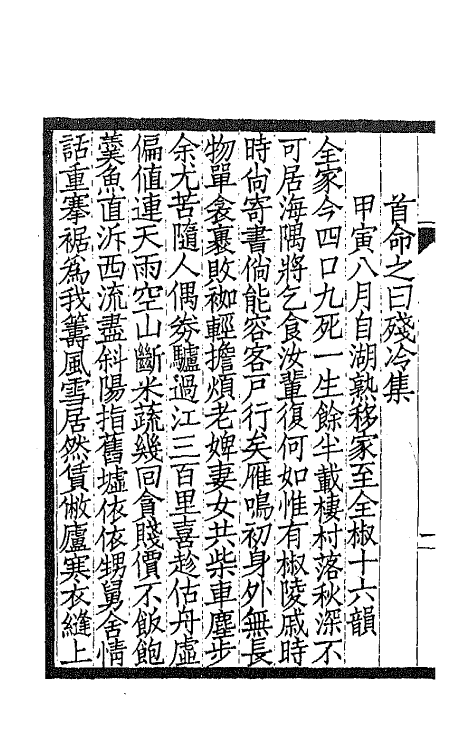 首命之曰殘冷集
甲寅八月自湖熟移家至全椒十六韻
全家今四口九死一生餘半載棲村落秋深不
可居海隅將乞食汝輩復何如惟有椒陵戚時
時尙寄書倘能容客戶行矣雁鳴初身外無長
物單衾裹敗袽輕擔煩老婢妻女共柴車塵步
余尤苦隨人偶劵驢過江三百里喜趁估舟虛
偏値連天雨空山斷米蔬幾回貪賤價不飯飽
羹魚直泝西流盡斜陽指舊墟依依甥舅舍情
話重搴裾爲我籌風雪居然賃敝廬寒衣縫上
二